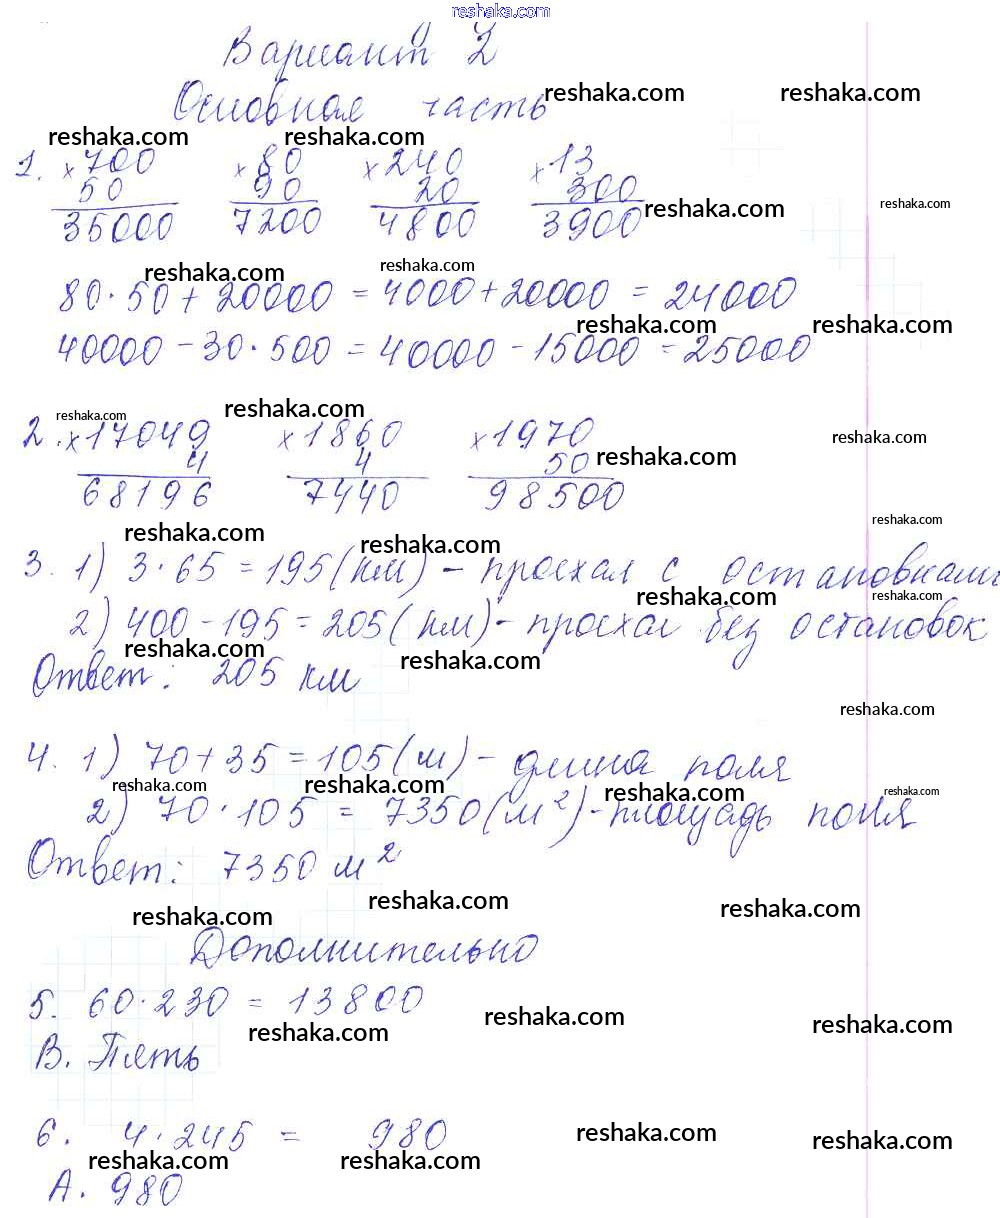 reshaka.com
Вариант 2
Основная часть
reshaka.com reshaka.com
reshaka.com reshaka.com
1. × 700 × 80 × 240 × 13
50 90 20 300
35000 7200 4800 3900
reshaka.com reshaka.com
reshaka.com reshaka.com
80 · 50 + 20000 = 4000 + 20000 = 24000
reshaka.com reshaka.com
40000 - 30 · 500 = 40000 - 15000 = 25000
reshaka.com reshaka.com
2. × 17049 × 1860 × 1970
reshaka.com
4 4 50
reshaka.com
68196 7440 98500
reshaka.com
reshaka.com reshaka.com
3. 1) 3 · 65 = 195 (км) - проехал с остановками
reshaka.com reshaka.com
2) 400 - 195 = 205 (км) - проехал без остановок
reshaka.com reshaka.com
Ответ: 205 км
reshaka.com
4. 1) 70 + 35 = 105 (м) - длина поля
reshaka.com reshaka.com reshaka.com reshaka.com
2) 70 · 105 = 7350 (м²) - площадь поля
Ответ: 7350 м²
reshaka.com reshaka.com reshaka.com
Дополнительно
5. 60 · 230 = 13800
reshaka.com reshaka.com reshaka.com
В. Пять
6. 4 · 245 = 980
reshaka.com reshaka.com
reshaka.com reshaka.com
А. 980